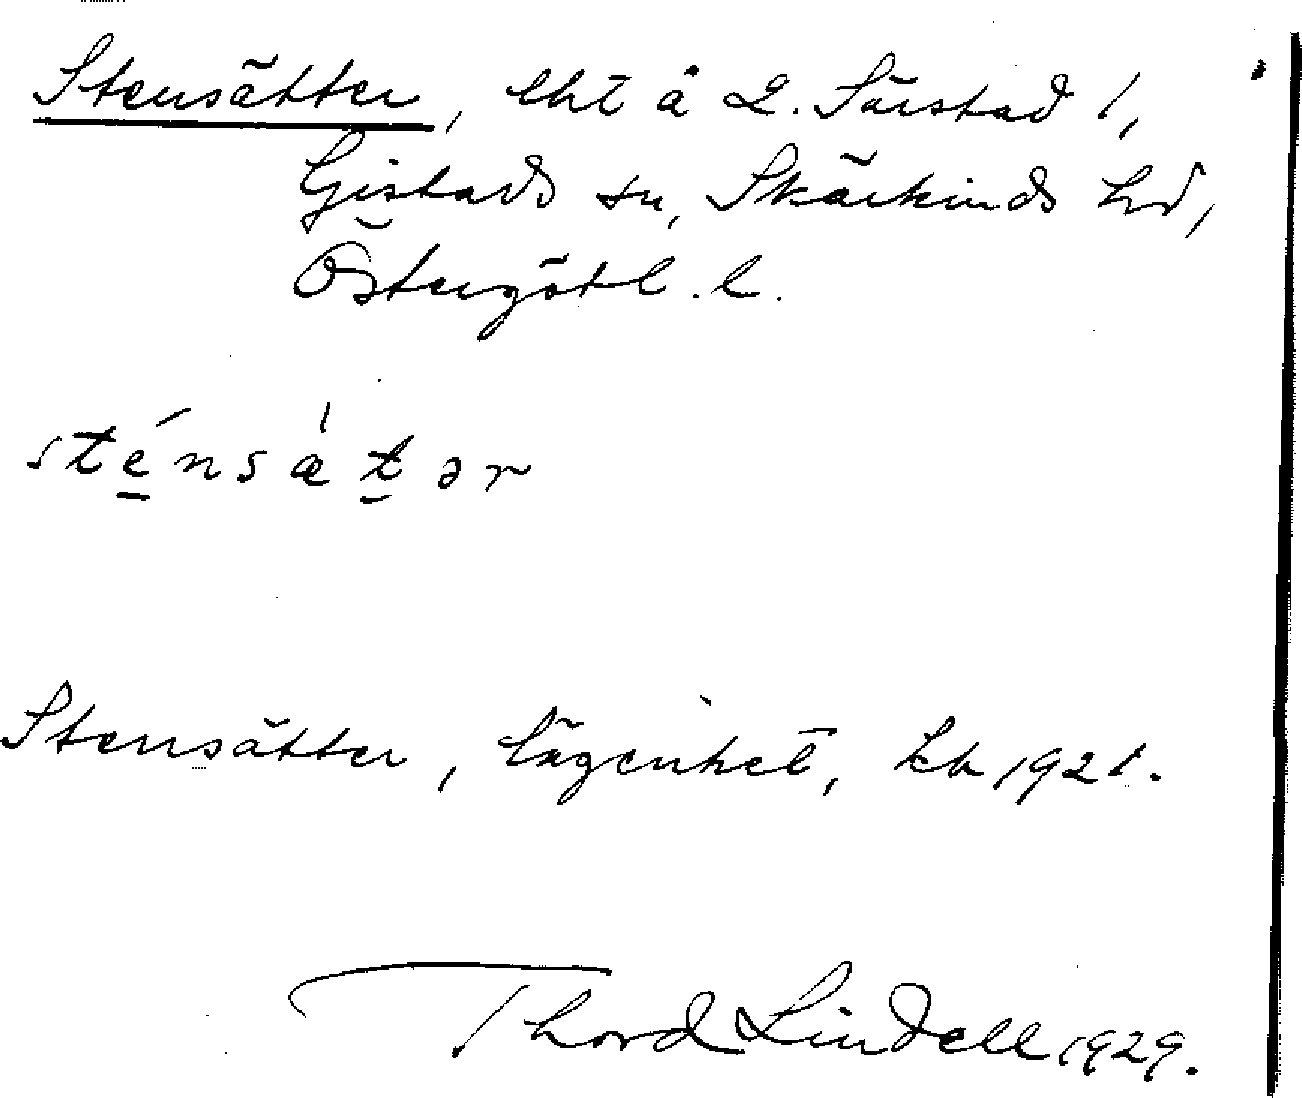 Stensätter, lht å L. Särstad 1,
Gistads sn, Skärkinds hd,
Östergötl. l.
sténsætər
Stensätter, lägenhet, kb 1921.
Thord Lindell 1929.